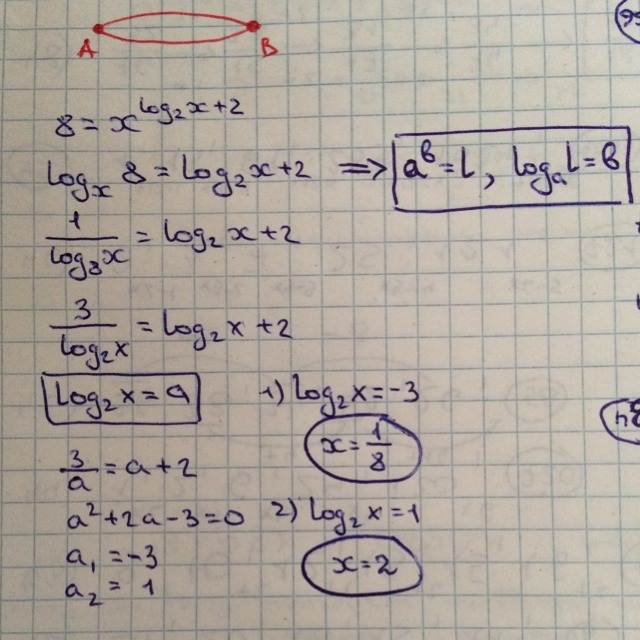 A B
8 = x^(log₂x+2)
logₓ 8 = log₂x+2 ⟹ aᵇ=l, logₐl=b
1/log₈x = log₂x+2
3/log₂x = log₂x+2
log₂x=a
3/a = a+2
a²+2a-3=0
a₁ = -3
a₂ = 1
1) log₂x=-3
x=1/8
2) log₂x=1
x=2